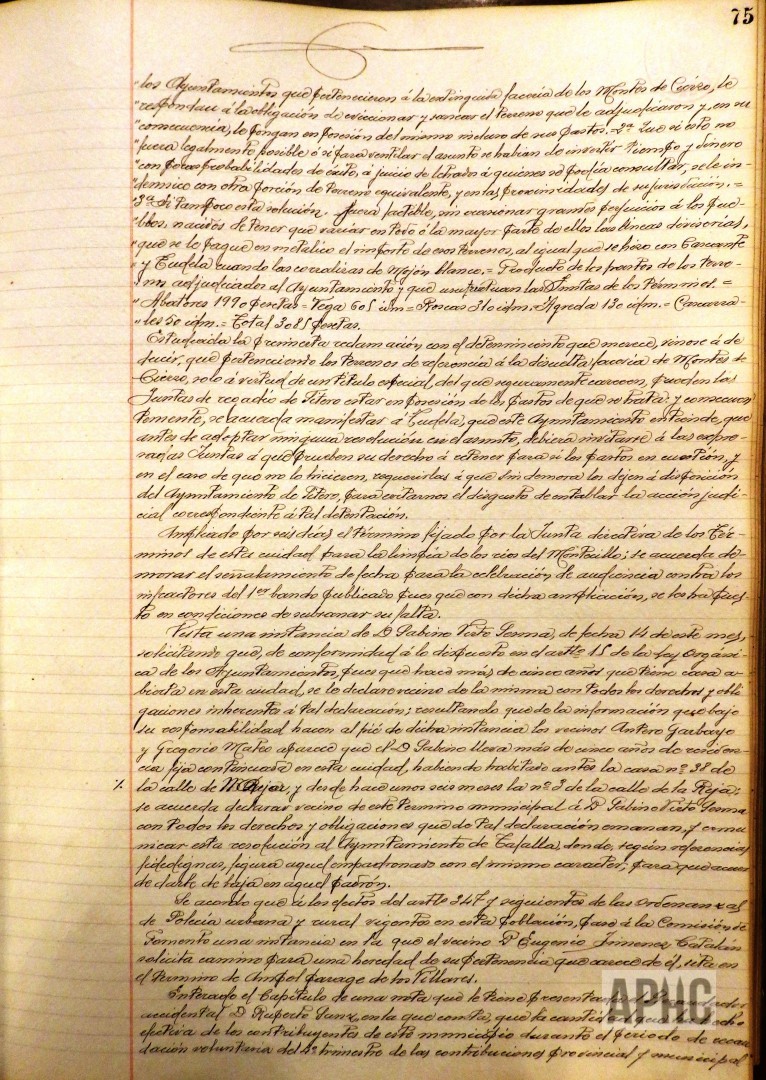 75
"los Ayuntamientos que pertenecieron á la extinguida facería de los Montes de Cierzo, le
"respondan á la obligación de eviccionar y sanear el terreno que le adjudicaron y, en su
"consecuencia, le pongan en posesión del mismo incluso de sus pastos.= 2ª Que si esto no
"fuera legalmente posible ó si para ventilar el asunto se habian de invertir tiempo y dinero
"con pocas probabilidades de éxito, á juicio de letrados á quienes se podia consultar, se le in-
"demnice con otra porción de terreno equivalente, y en las proximidades de su jurisdicción.=
"3ª Si tampoco esta solución fuera factible, sin ocasionar grandes perjuicios á los pue-
"blos, nacidos de tener que variar en todo ó la mayor parte de ellos las líneas divisorias,
"que se le pague en metalico el importe de esos terrenos, al igual que se hizo con Cascante
"y Tudela cuando las corralizas de Mojón blanco.= Producto de los pastos de los terre-
"nos adjudicados al Ayuntamiento y que usufructuan las Juntas de los términos.=
"Abatores 1990 pesetas = Vega 605 idm = Roscas 310 idm = Agudo 130 idm. = Cascarra-
"les 50 idm. = Total 3085 pesetas.
Estudiada la preinserta reclamación con el detenimiento que merece, vinose á de-
ducir, que perteneciendo los terrenos de referencia á la disuelta facería de Montes de
Cierzo, solo á virtud de un título especial, del que seguramente carecen, pueden las
Juntas de regadío de Fitero estar en posesión de los pastos de que se trata: y consecuen-
temente, se acuerda manifestar á Tudela, que este Ayuntamiento entiende, que
antes de adoptar ninguna resolución en el asunto, debiera invitarse á las expre-
sadas Juntas á que prueben su derecho á retener para si los pastos en cuestión, y
en el caso de que no lo hicieren, requerirlas á que sin demora los dejen á disposición
del Ayuntamiento de Fitero, para evitarnos el disgusto de entablar la acción judi-
cial correspondiente á tal detentación.
Ampliado por seis días el término fijado por la Junta directiva de los Tér-
minos de esta ciudad para la limpia de los rios del Montecillo; se acuerda de-
morar el señalamiento de fecha para la celebración de audiencia contra los
infractores del 1er bando publicado pues que con dicha ampliación, se les ha pues-
to en condiciones de subsanar su falta.
Vista una instancia de D. Sabino Vieto Serma, de fecha 14 de este mes,
solicitando que, de conformidad á lo dispuesto en el artlo 15 de la Ley Orgáni-
ca de los Ayuntamientos, pues que hace más de cinco años que tiene casa a-
bierta en esta ciudad, se le declare vecino de la misma con todos los derechos y obli-
gaciones inherentes á tal declaración; resultando que de la información que bajo
su responsabilidad hacen al pié de dicha instancia los vecinos Antero Garbayo
y Gregorio Mateo aparece que el D. Sabino lleva más de cinco años de residen-
cia fija continuada en esta ciudad, habiendo habitado antes la casa nº 38 de
la calle de y desde hace unos seis meses la nº 3 de la calle de la Reja;
se acuerda declarar vecino de este término municipal á D. Sabino Vieto Serma
con todos los derechos y obligaciones que de tal declaración emanan, y comu-
nicar esta resolución al Ayuntamiento de Tafalla, donde, según referencias
fidedignas, figura aquel empadronado con el mismo caracter; para que acuer-
de darle de baja en aquel padrón.
Se acordo que á los efectos del artlo 347 y siguientes de las Ordenanzas
de Policía urbana y rural vigentes en esta población, pase á la Comisión de
Fomento una instancia en la que el vecino D. Eugenio Jimenez Catalán
solicita camino para una heredad de su pertenencia que carece de él, sita en
el término de Ampol parage de los Pillares.
Enterado el Capítulo de una nota que le tiene presentada el recaudador
accidental D. Ruperto Sanz, en la que consta, que la cantidad que ha hecho
efectiva de los contribuyentes de este municipio durante el período de recau-
dación voluntaria del 4º trimestre de las contribuciones provincial y municipal
APHC